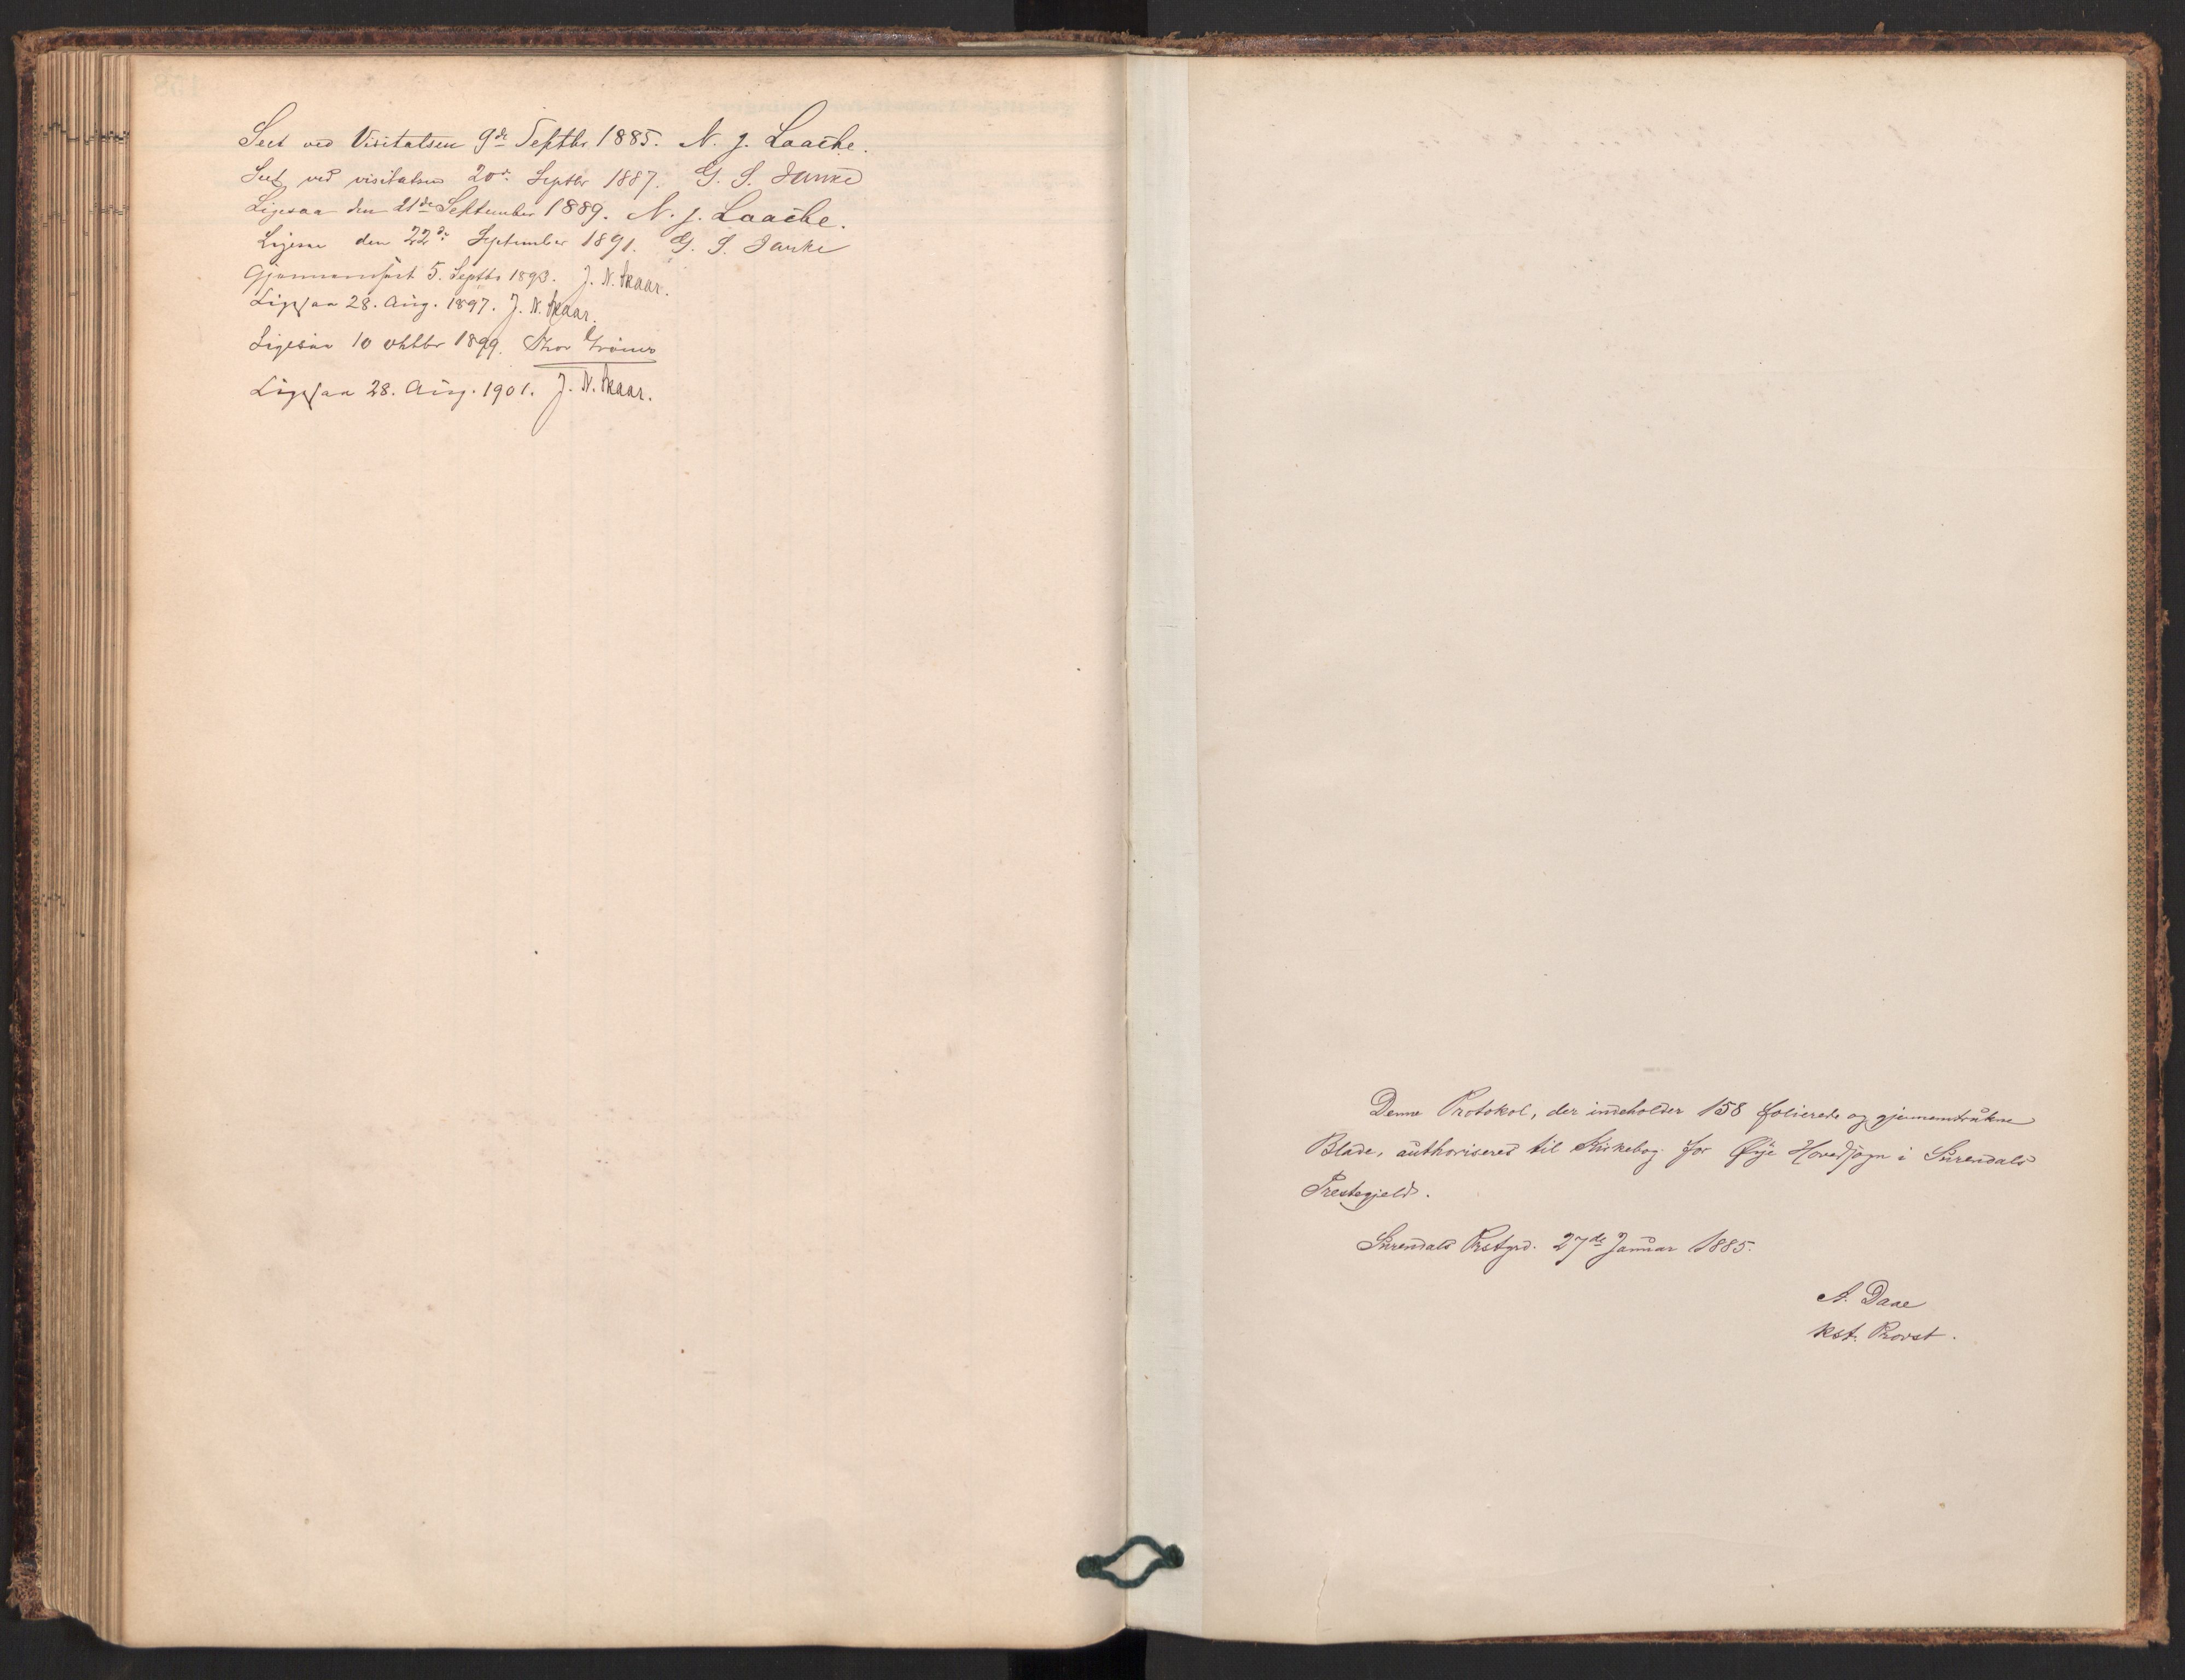 Seet ved Visitatsen 9de Septbr 1885. N. J. Laache.
Seet ved visitatsen 20de Septbr 1887. G. S.
Ligesaa den 21de September 1889. N. J. Laache.
Ligesaa den 22de September 1891. G. S.
Gjennemseet 5. Septbr 1893. J. N. Skaar.
Ligesaa 28. Aug. 1897. J. N. Skaar.
Ligesaa 10 oktbr 1899.
Ligesaa 28. Aug. 1901. J. N. Skaar.
Denne Protokol, der indeholder 158 folierede og gjennemtrukne
Blade, authoriseres til Kirkebog for Øye Hovedsogn i Surendals
Prestegjeld.
Surendals Prstgrd. 27de Januar 1885.
A. Daae
kst. Provst.